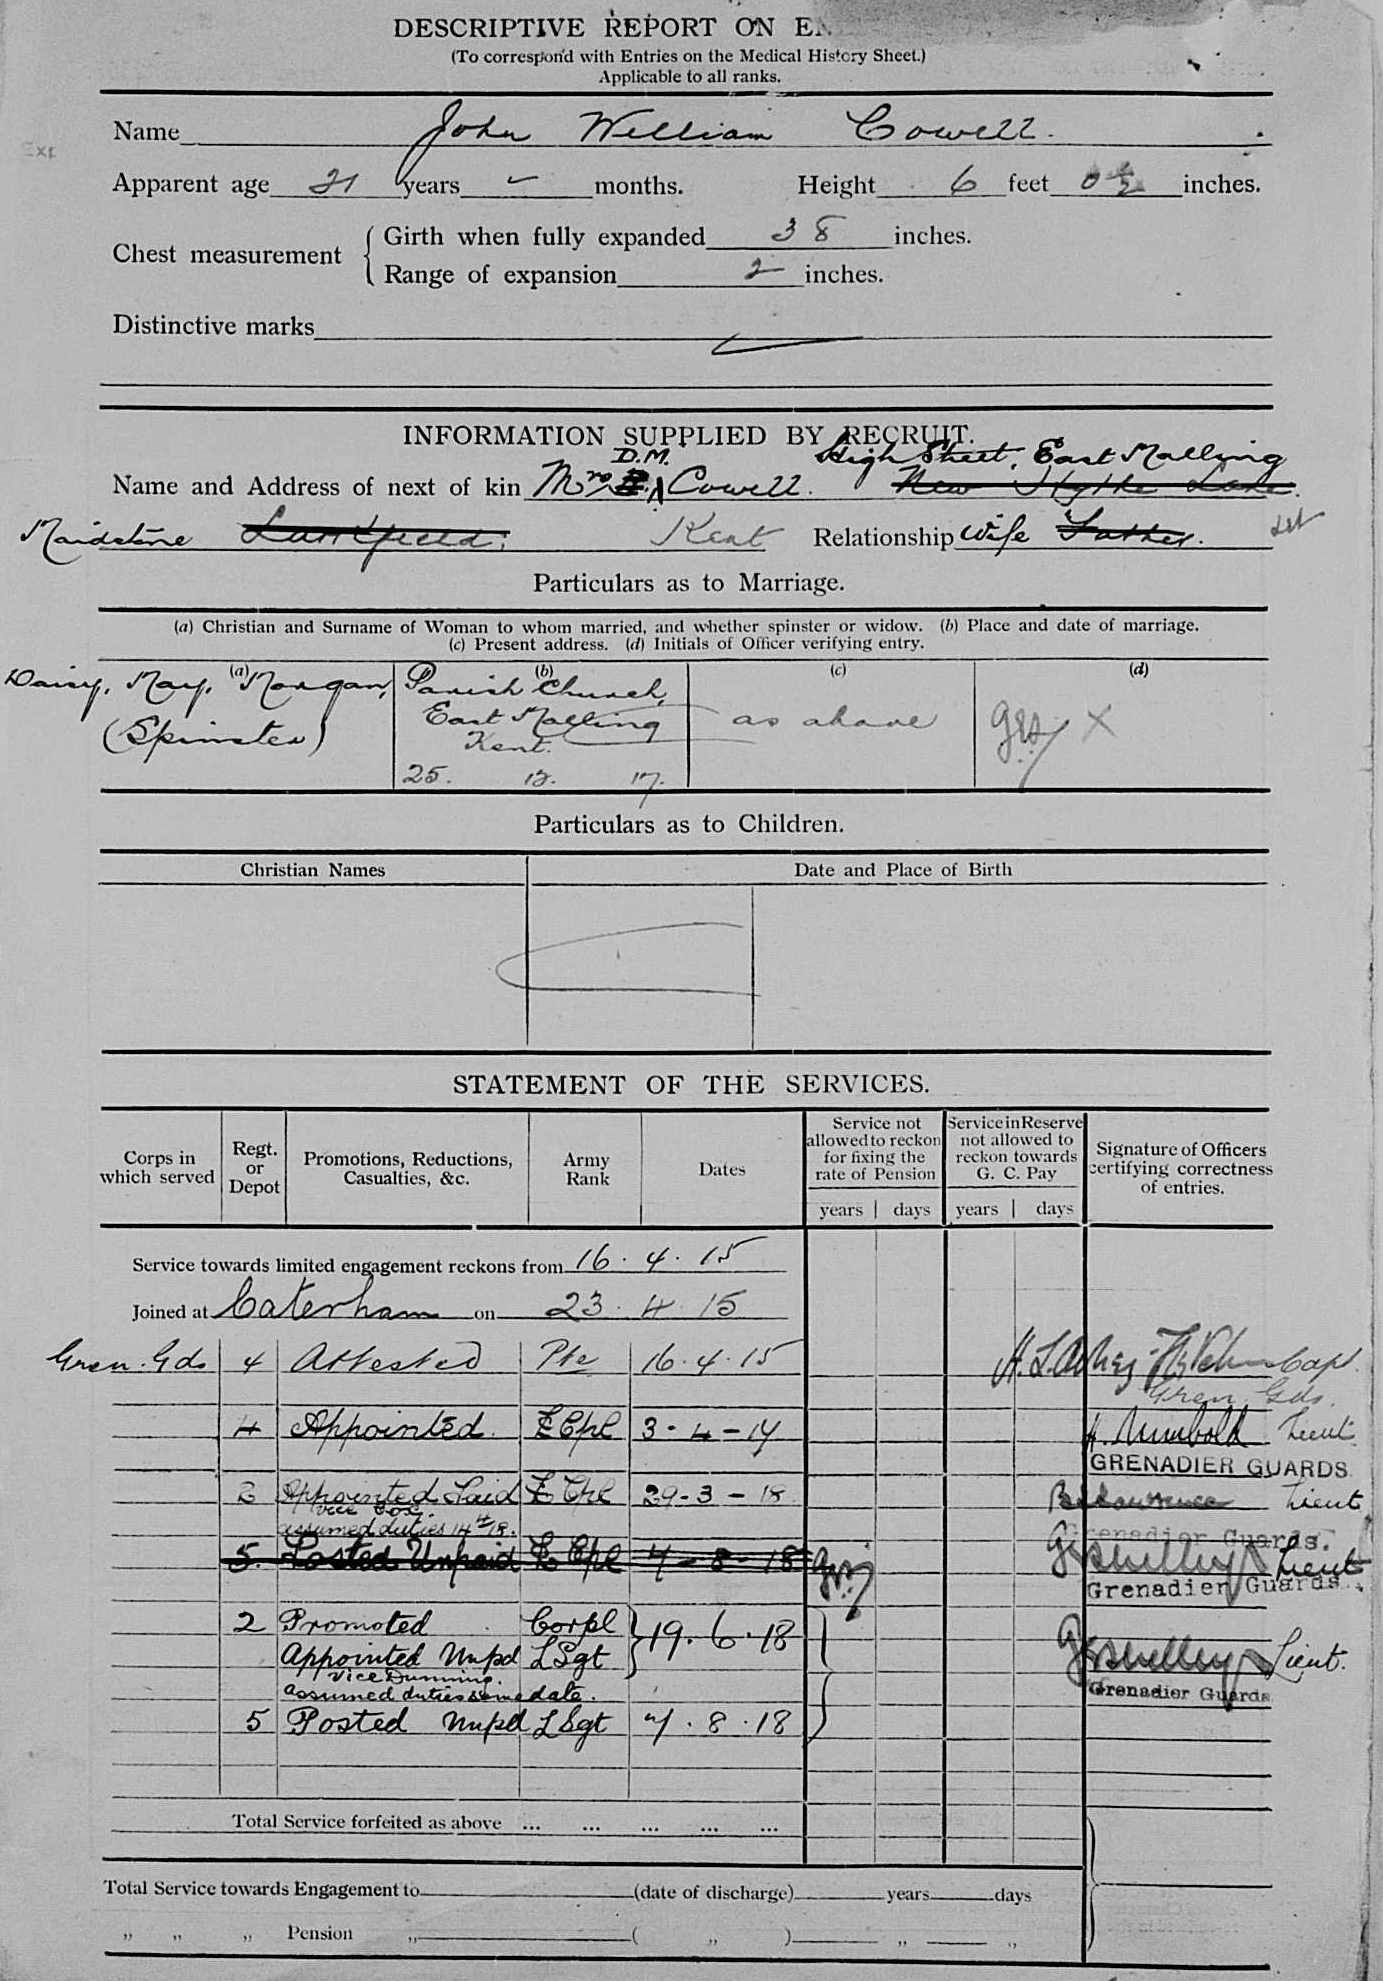 DESCRIPTIVE REPORT ON
(To correspond with Entries on the Medical History Sheet.)
Applicable to all ranks.
Name John William Cowell.
Apparent age 21 years - months. Height 6 feet 0½ inches.
Chest measurement
Girth when fully expanded 38 inches.
Range of expansion 2 inches.
Distinctive marks
INFORMATION SUPPLIED BY RECRUIT.
D.M. High Street, East Malling
Name and Address of next of kin Mrs Cowell. New Hythe Lane.
Maidstone Larkfield. Kent Relationship Wife Father.
Particulars as to Marriage.
(a) Christian and Surname of Woman to whom married, and whether spinster or widow. (b) Place and date of marriage.
(c) Present address. (d) Initials of Officer verifying entry.
(a) (b) (c) (d)
Daisy, May, Morgan, Parish Church,
(Spinster) East Malling as above X
Kent.
25. 12. 17.
Particulars as to Children.
Christian Names Date and Place of Birth
STATEMENT OF THE SERVICES.
Corps in which served
Regt. or Depot
Promotions, Reductions, Casualties, &c.
Army Rank
Dates
Service not allowed to reckon for fixing the rate of Pension
Service in Reserve not allowed to reckon towards G. C. Pay
Signature of Officers certifying correctness of entries.
years days years days
Service towards limited engagement reckons from 16. 4. 15
Joined at Caterham on 23. 4. 15
Gren. Gds 4 Attested Pte 16.4.15 Capt.
Gren. Gds.
4 Appointed. L Cpl 3-4-17 Lieut
GRENADIER GUARDS
2 Appointed Paid L Cpl 29-3-18 Lieut
vice Cox.
assumed duties
Grenadier Guards.
5. Posted Unpaid L Cpl 4-8-18 Lieut
Grenadier Guards.
2 Promoted Corpl 19.6.18
Appointed Unpd L Sgt Lieut.
vice Dunning.
assumed duties same date. Grenadier Guards
5 Posted Unpd L Sgt 4.8.18
Total Service forfeited as above ... ... ... ... ...
Total Service towards Engagement to (date of discharge) years days
„ „ „ Pension „ ( „ ) „ „